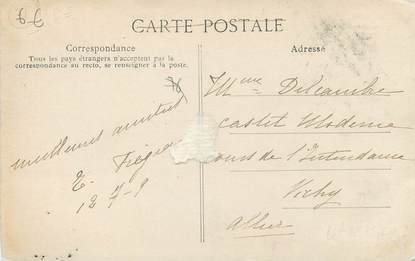 6€
CARTE POSTALE
Correspondance
Tous les pays étrangers n'acceptent pas la
correspondance au recto, se renseigner à la poste.
Adressé
Mme
castel Moderne
cours de l'Intendance
Vichy
Allier
meilleures amitiés
E.
12-7-9